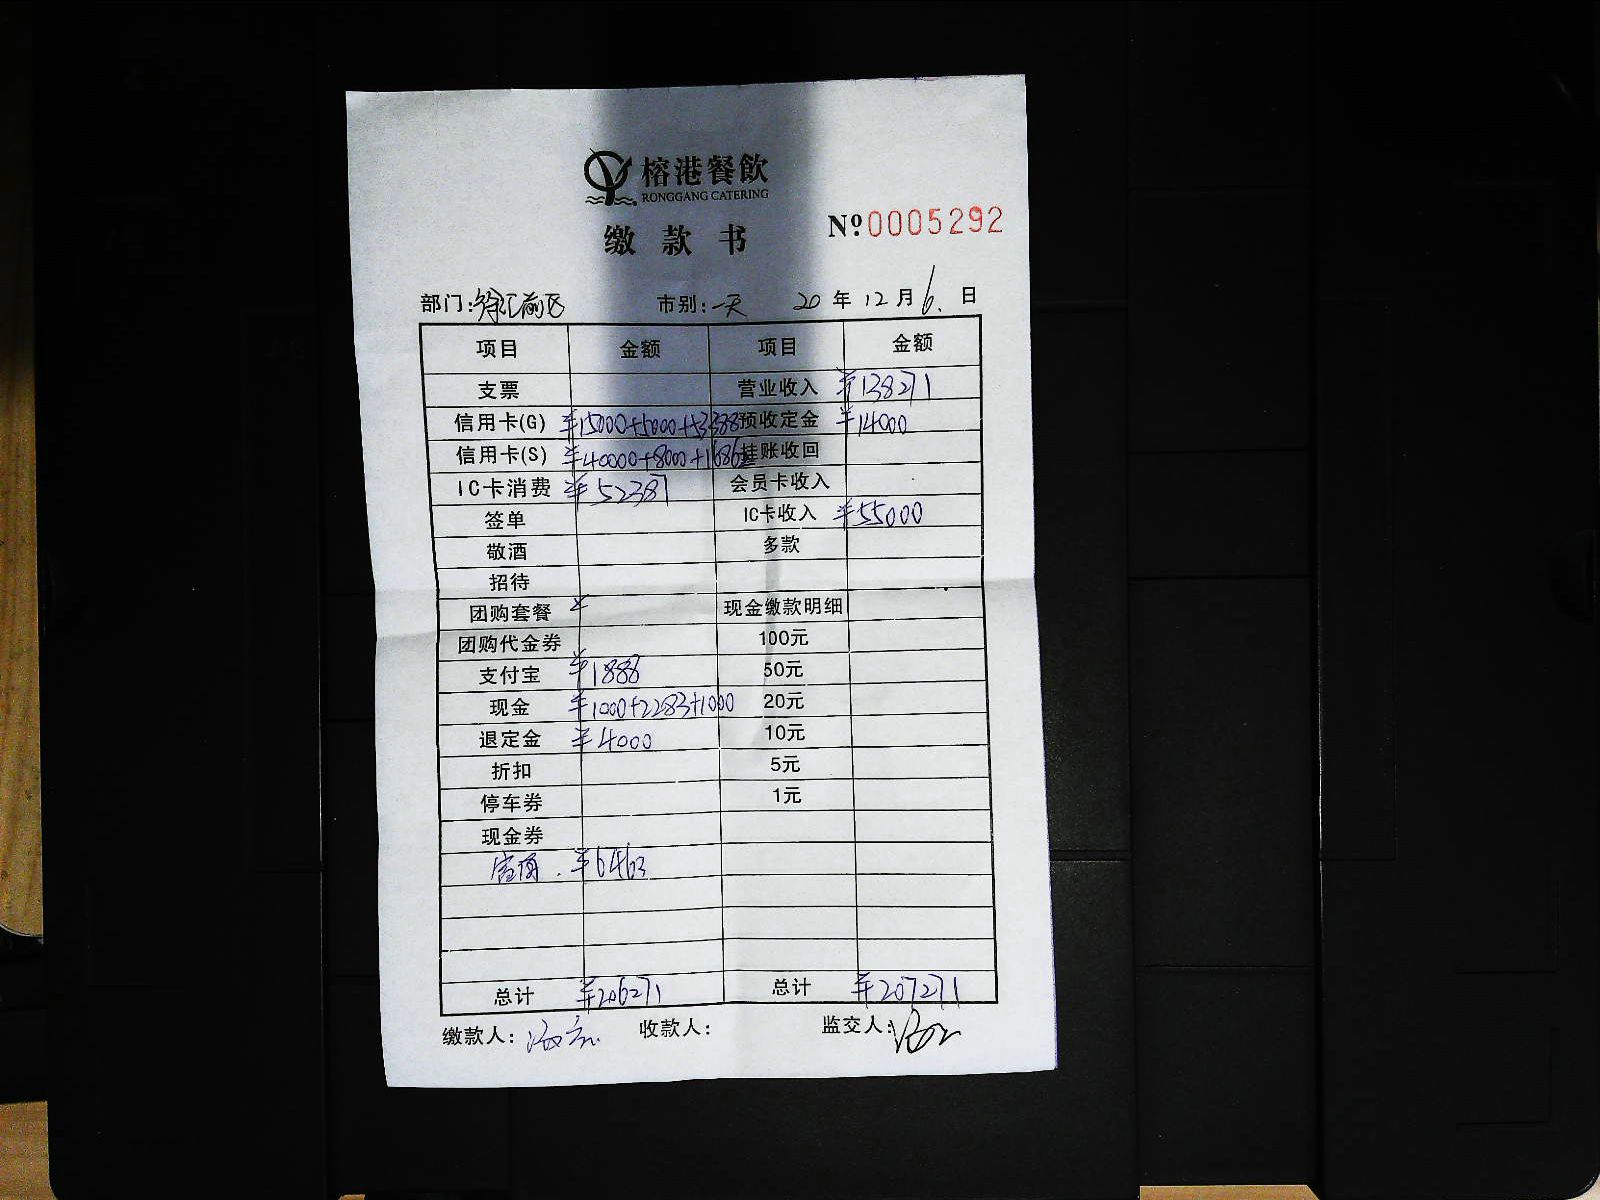 榕港餐飲
RONGGANG CATERING
缴款书
№0005292
部门:徐汇前区 市别:一天 20年12月6日
项目 金额 项目 金额
支票 营业收入 ¥138271
信用卡(G) ¥15000+5000+53388 预收定金 ¥14000
信用卡(S) ¥40000+8000+1686 挂账收回
IC卡消费 ¥52387 会员卡收入
签单 IC卡收入 ¥55000
敬酒 多款
招待
团购套餐 现金缴款明细
团购代金券 100元
支付宝 ¥1888 50元
现金 ¥1000+2283+1000 20元
退定金 ¥4000 10元
折扣 5元
停车券 1元
现金券
¥6463
总计 ¥206271 总计 ¥207271
缴款人: 收款人: 监交人: